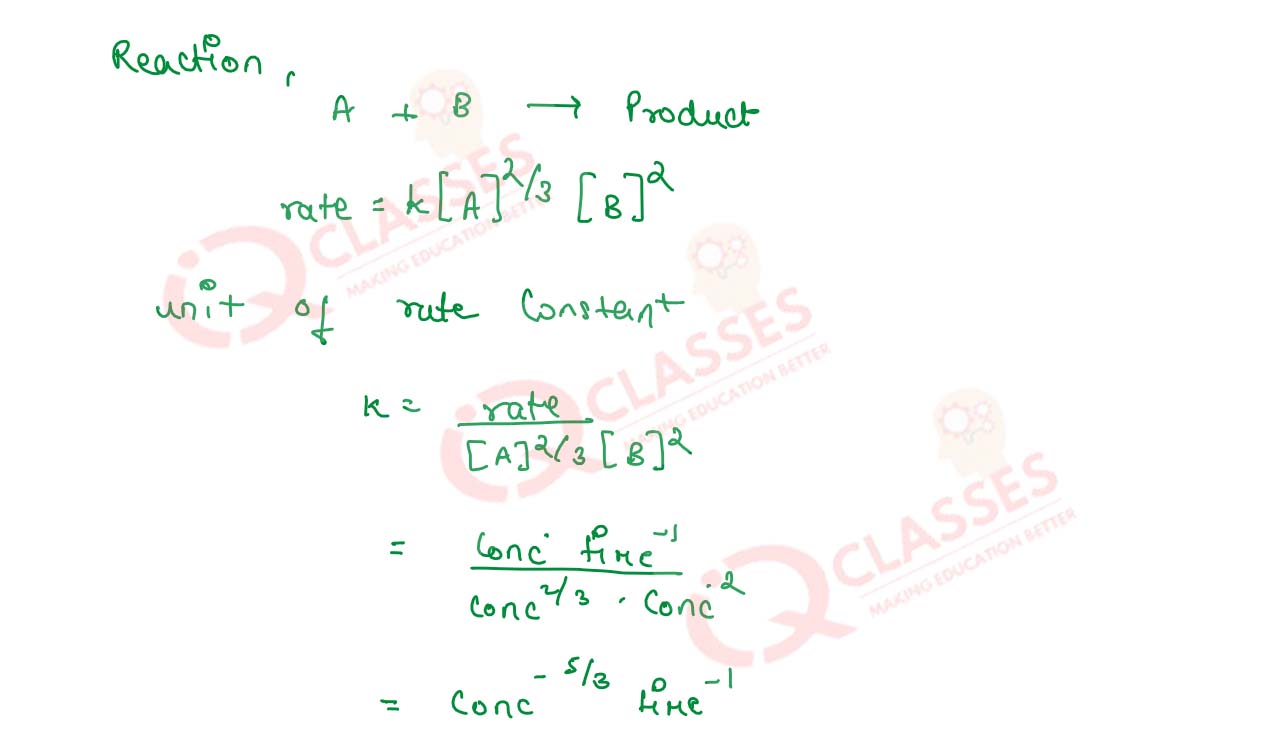 Reaction,
A + B → Product
rate = k[A]^2/3 [B]^2
unit of rate Constant
K = rate
[A]^2/3 [B]^2
= Conc. time^-1
Conc^2/3 . Conc.^2
= Conc^-5/3 time^-1
IQ CLASSES
MAKING EDUCATION BETTER
IQ CLASSES
MAKING EDUCATION BETTER
IQ CLASSES
MAKING EDUCATION BETTER